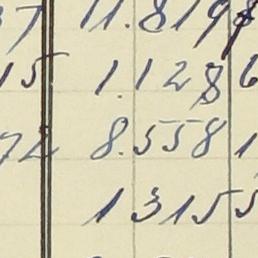 37 11.8198
15 1.128 6
72 8.558 1
13155